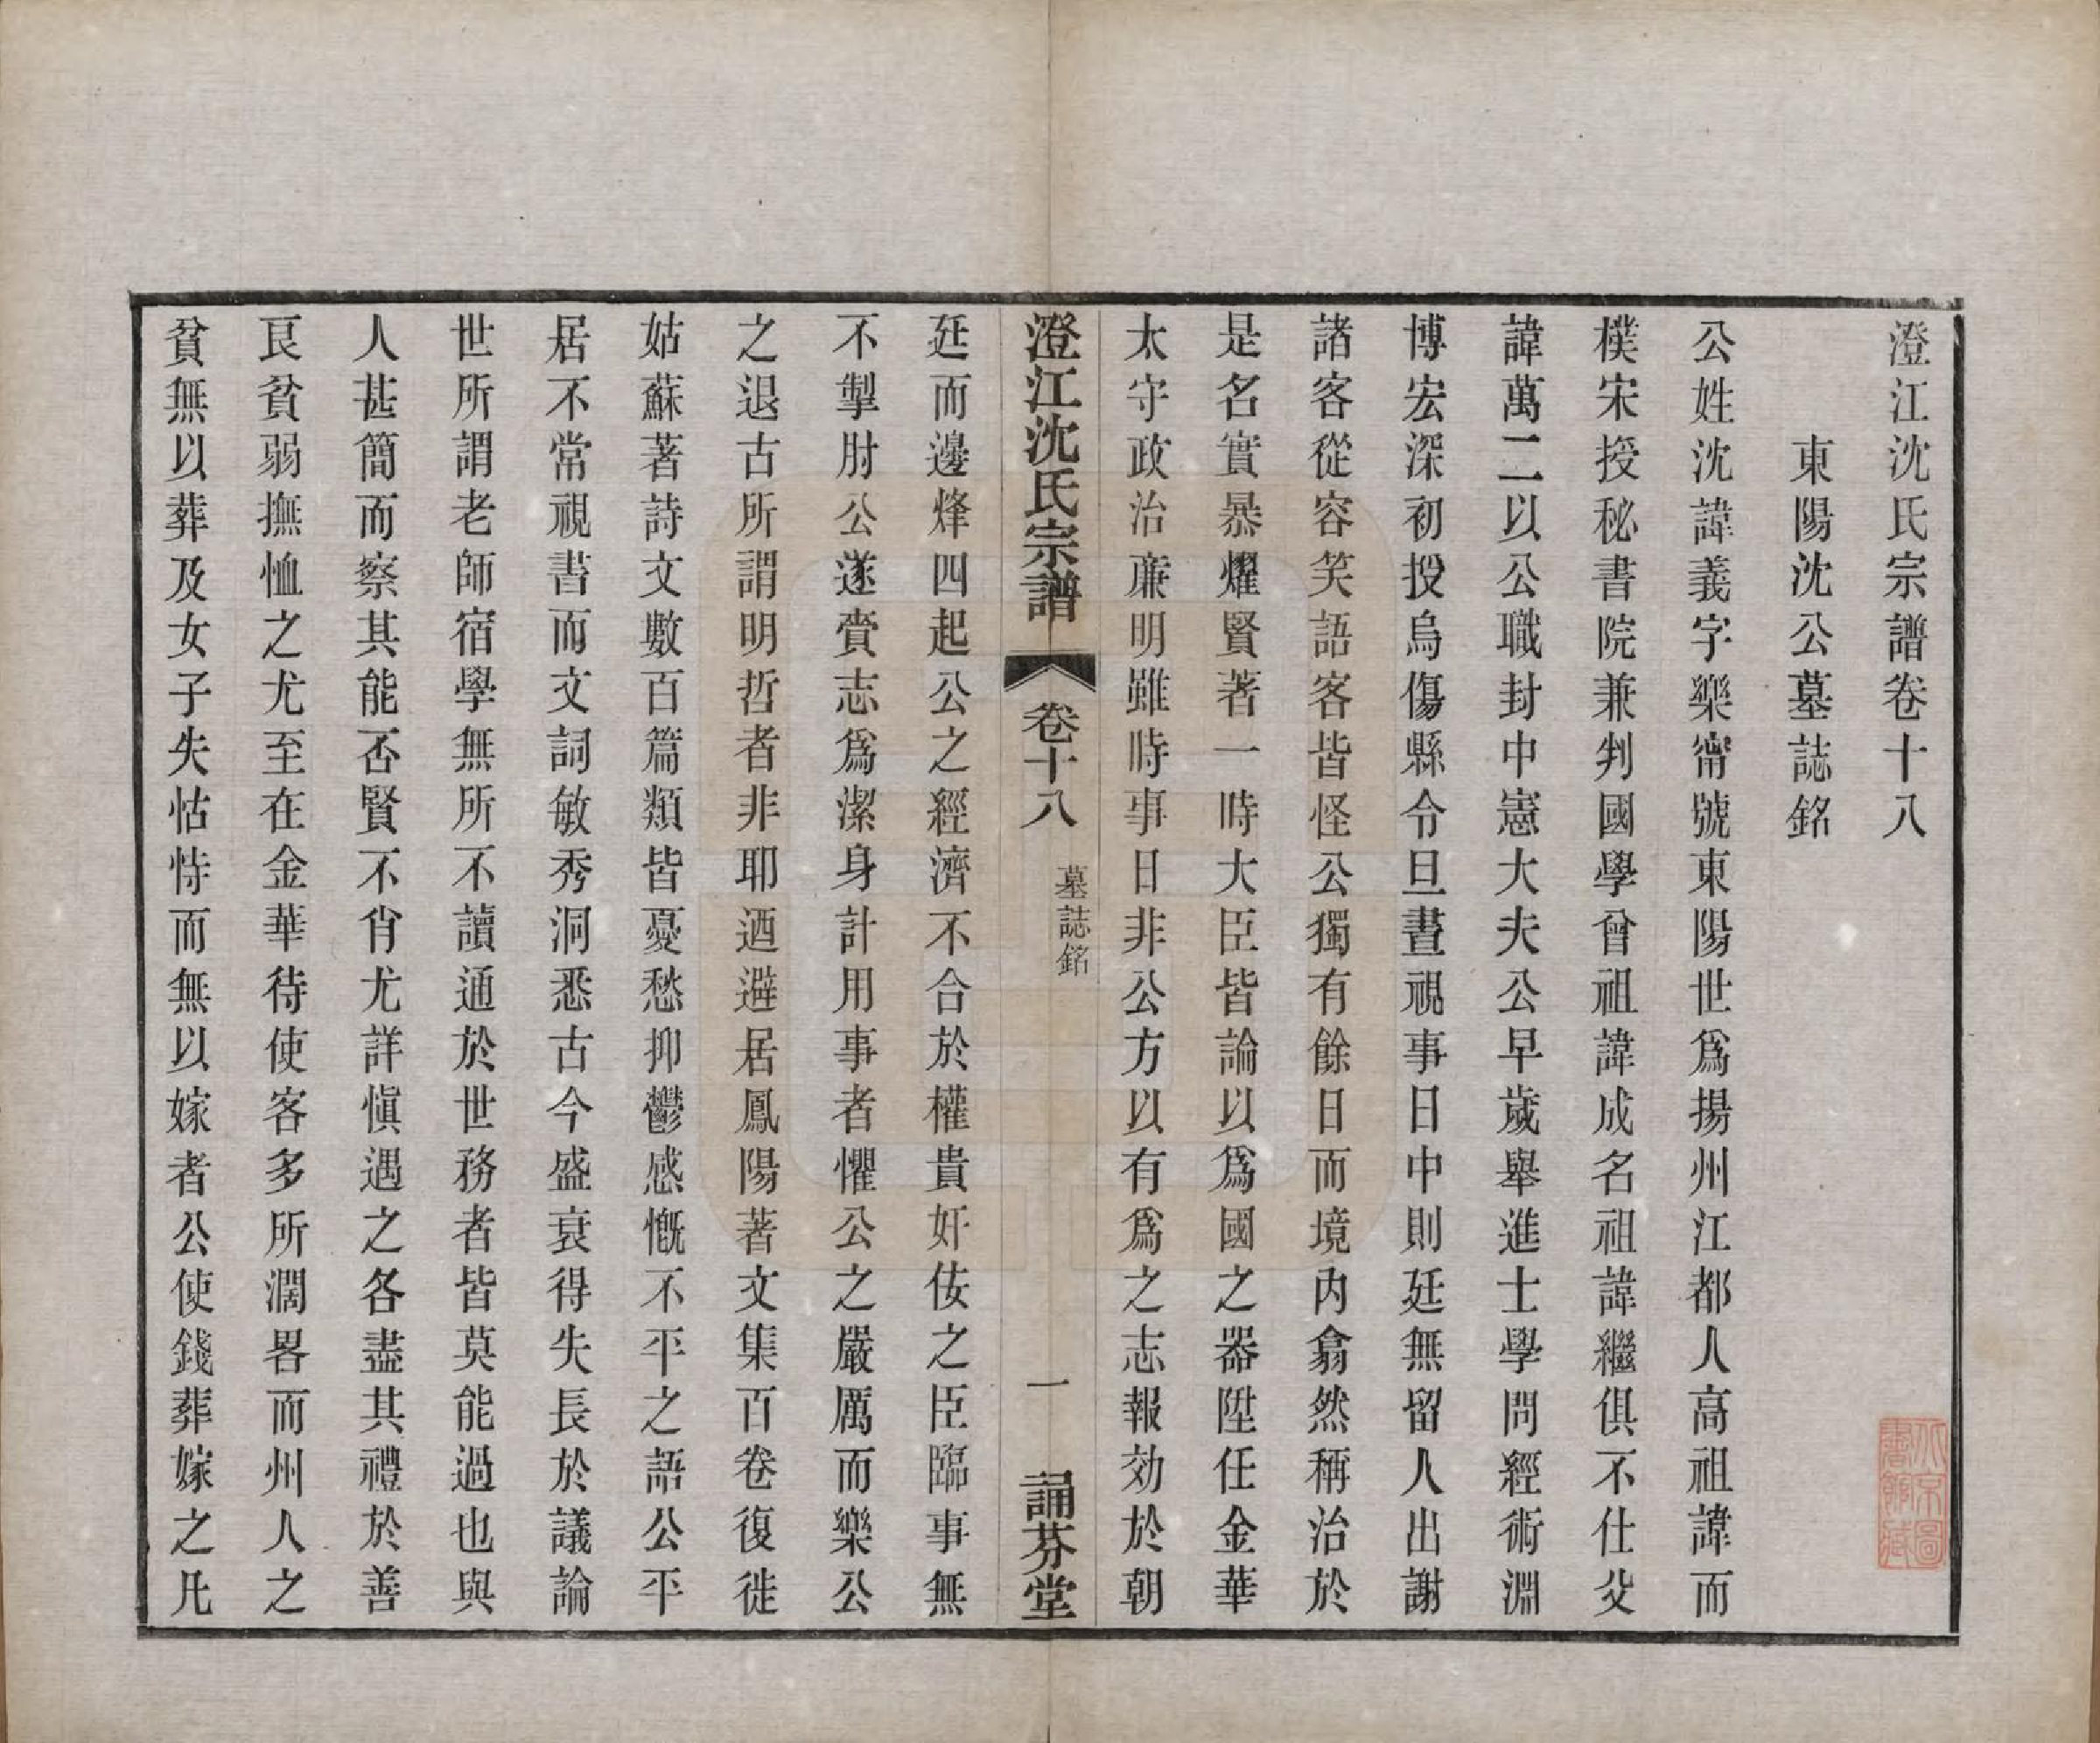 澄江沈氏宗譜卷十八
東陽沈公墓誌銘
公姓沈諱義字樂甯號東陽世爲揚州江都人高祖諱而
樸宋授秘書院兼判國學曾祖諱成名祖諱繼俱不仕父
諱萬二以公職封中憲大夫公早歲舉進士學問經術淵
博宏深初授烏傷縣令旦晝視事日中則廷無留人出謝
諸客從容笑語客皆怪公獨有餘日而境内翕然稱治於
是名實暴燿賢著一時大臣皆論以爲國之器陞任金華
太守政治亷明雖時事日非公方以有爲之志報効於朝
澄江沈氏宗譜 卷十八 墓誌銘 一 誦芬堂
廷而邊烽四起公之經濟不合於權貴奸佞之臣臨事無
不掣肘公遂賫志爲潔身計用事者懼公之嚴厲而樂公
之退古所謂明哲者非耶迺避居鳳陽著文集百卷復徙
姑蘇著詩文數百篇類皆憂愁抑鬱感慨不平之語公平
居不常視書而文詞敏秀洞悉古今盛衰得失長於議論
世所謂老師宿學無所不讀通於世務者皆莫能過也與
人甚簡而察其能否賢不肖尤詳愼遇之各盡其禮於善
良貧弱撫恤之尤至在金華待使客多所濶畧而州人之
貧無以葬及女子失怙恃而無以嫁者公使錢葬嫁之凡
北京圖書館藏